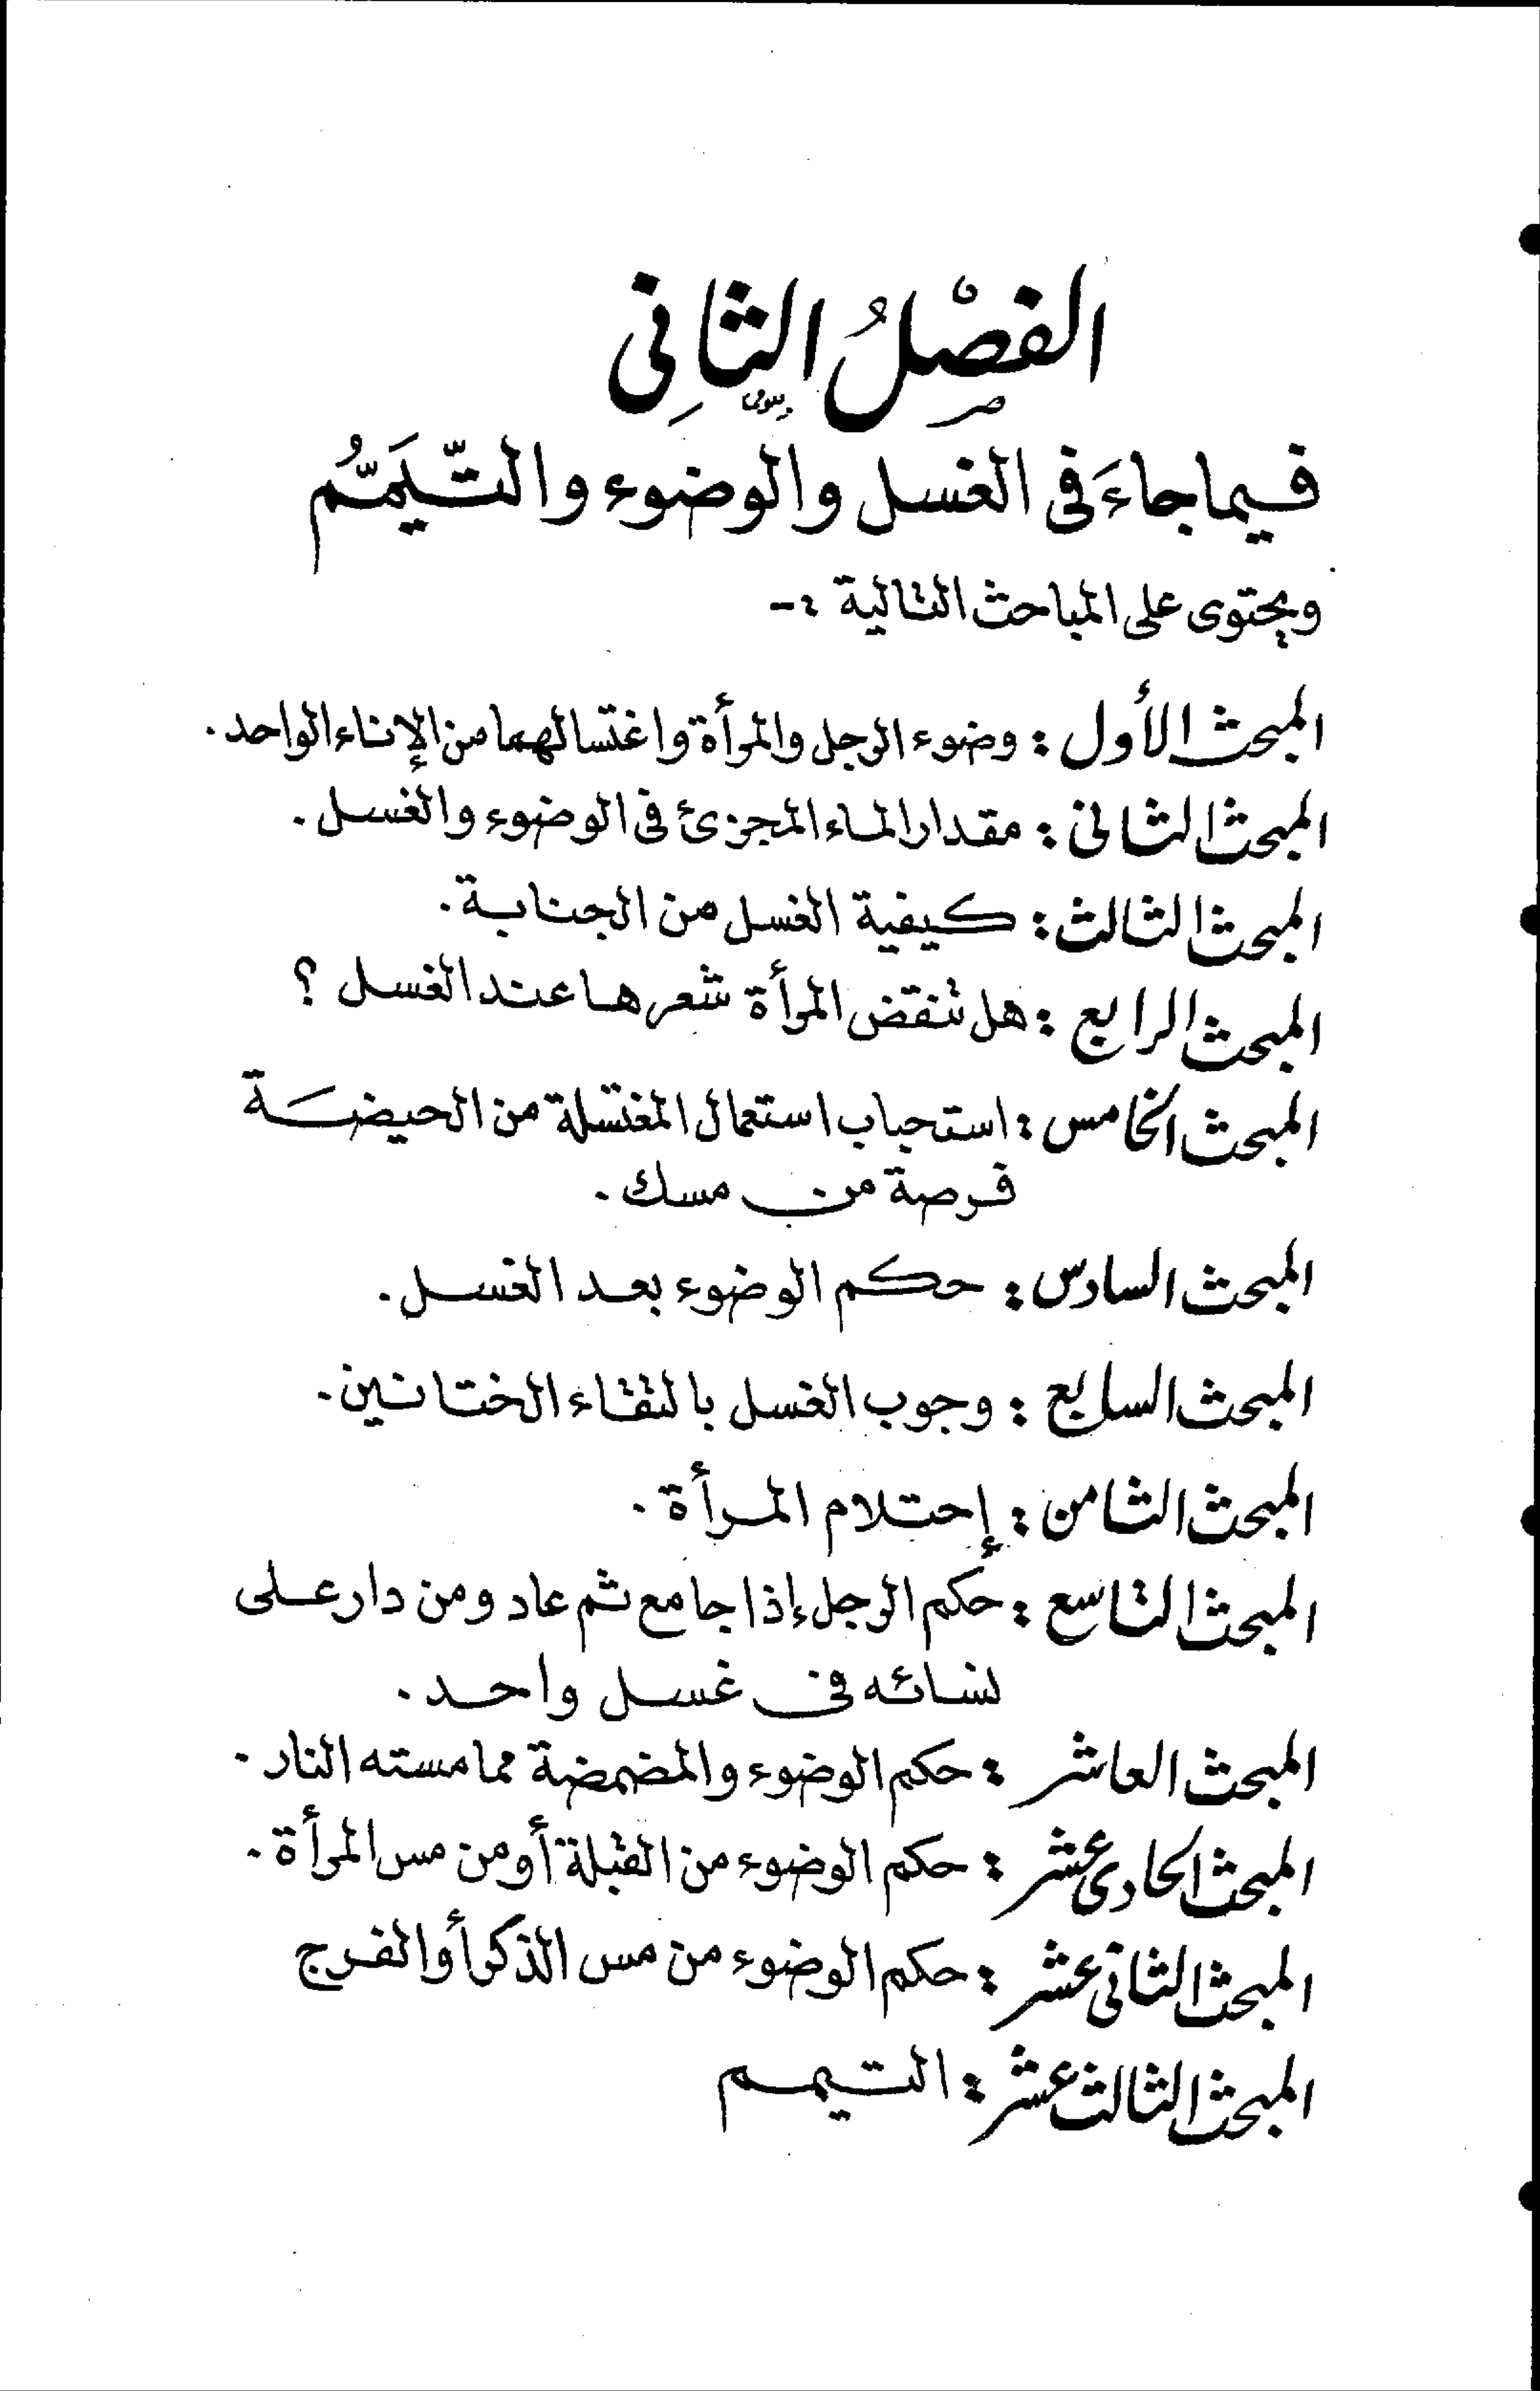 الفصْلُ الثانِى
فيما جاءَ فى الغسل والوضوء والتّيَمُّم
ويحتوى على المباحث التالية :-
المبحث الأول : وضوء الرجل والمرأة واغتسالهما من الإناء الواحد .
المبحث الثانى : مقدار الماء المجزئ فى الوضوء والغسل .
المبحث الثالث : كيفية الغسل من الجنابة .
المبحث الرابع : هل تنقض المرأة شعرها عند الغسل ؟
المبحث الخامس : استحباب استعمال المغتسلة من الحيضة
فرصة من مسك .
المبحث السادس : حكم الوضوء بعد الغسل .
المبحث السابع : وجوب الغسل بالتقاء الختانين .
المبحث الثامن : إحتلام المرأة .
المبحث التاسع : حكم الرجل إذا جامع ثم عاد ومن دار على
نسائه فى غسل واحد .
المبحث العاشر : حكم الوضوء والمضمضة مما مسته النار .
المبحث الحادى عشر : حكم الوضوء من القبلة أو من مس المرأة .
المبحث الثانى عشر : حكم الوضوء من مس الذكر أو الفرج
المبحث الثالث عشر : التيمم